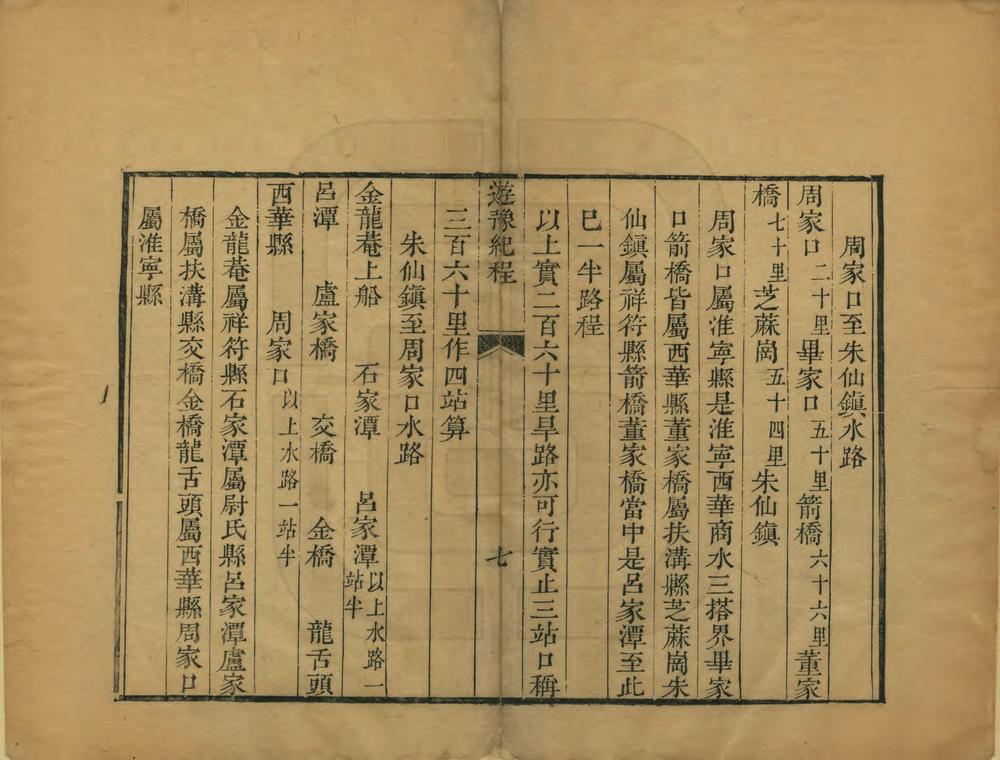 周家口至朱仙鎮水路
周家口二十里畢家口五十里箭橋六十六里董家
橋七十里芝蔴崗五十四里朱仙鎮
周家口屬淮寧縣是淮寧西華商水三搭界畢家
口箭橋皆屬西華縣董家橋屬扶溝縣芝蔴崗朱
仙鎮屬祥符縣箭橋董家橋當中是呂家潭至此
巳一半路程
以上實二百六十里旱路亦可行實止三站口稱
遊豫紀程
七
三百六十里作四站算
朱仙鎮至周家口水路
金龍菴上船 石家潭 呂家潭以上水路一站半
呂潭 盧家橋 交橋 金橋 龍舌頭
西華縣 周家口以上水路一站半
金龍菴屬祥符縣石家潭屬尉氏縣呂家潭盧家
橋屬扶溝縣交橋金橋龍舌頭屬西華縣周家口
屬淮寧縣